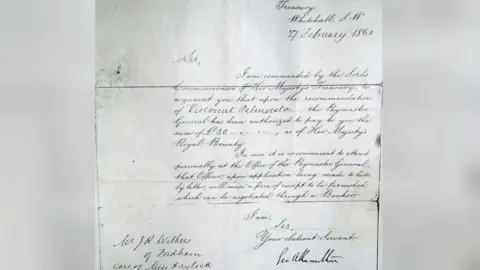 Treasury
Whitehall S.W
27 February 1860
Sir,
I am commanded by the Lords
Commissioners of Her Majesty's Treasury, to
acquaint you that upon the recommendation
of Viscount Palmerston the Paymaster
General has been authorized to pay to you the
sum of £50 as of Her Majesty's
Royal Bounty.
In case it is inconvenient to attend
personally at the Office of the Paymaster General,
that Officer, upon application being made to him
by letter, will send a form of receipt to be furnished
which can be negotiated through a Banker.
I am,
Sir,
Your Obedient Servant,
Geo A Hamilton
Mr J R Withers
of Fordham
care of Miss Haylock